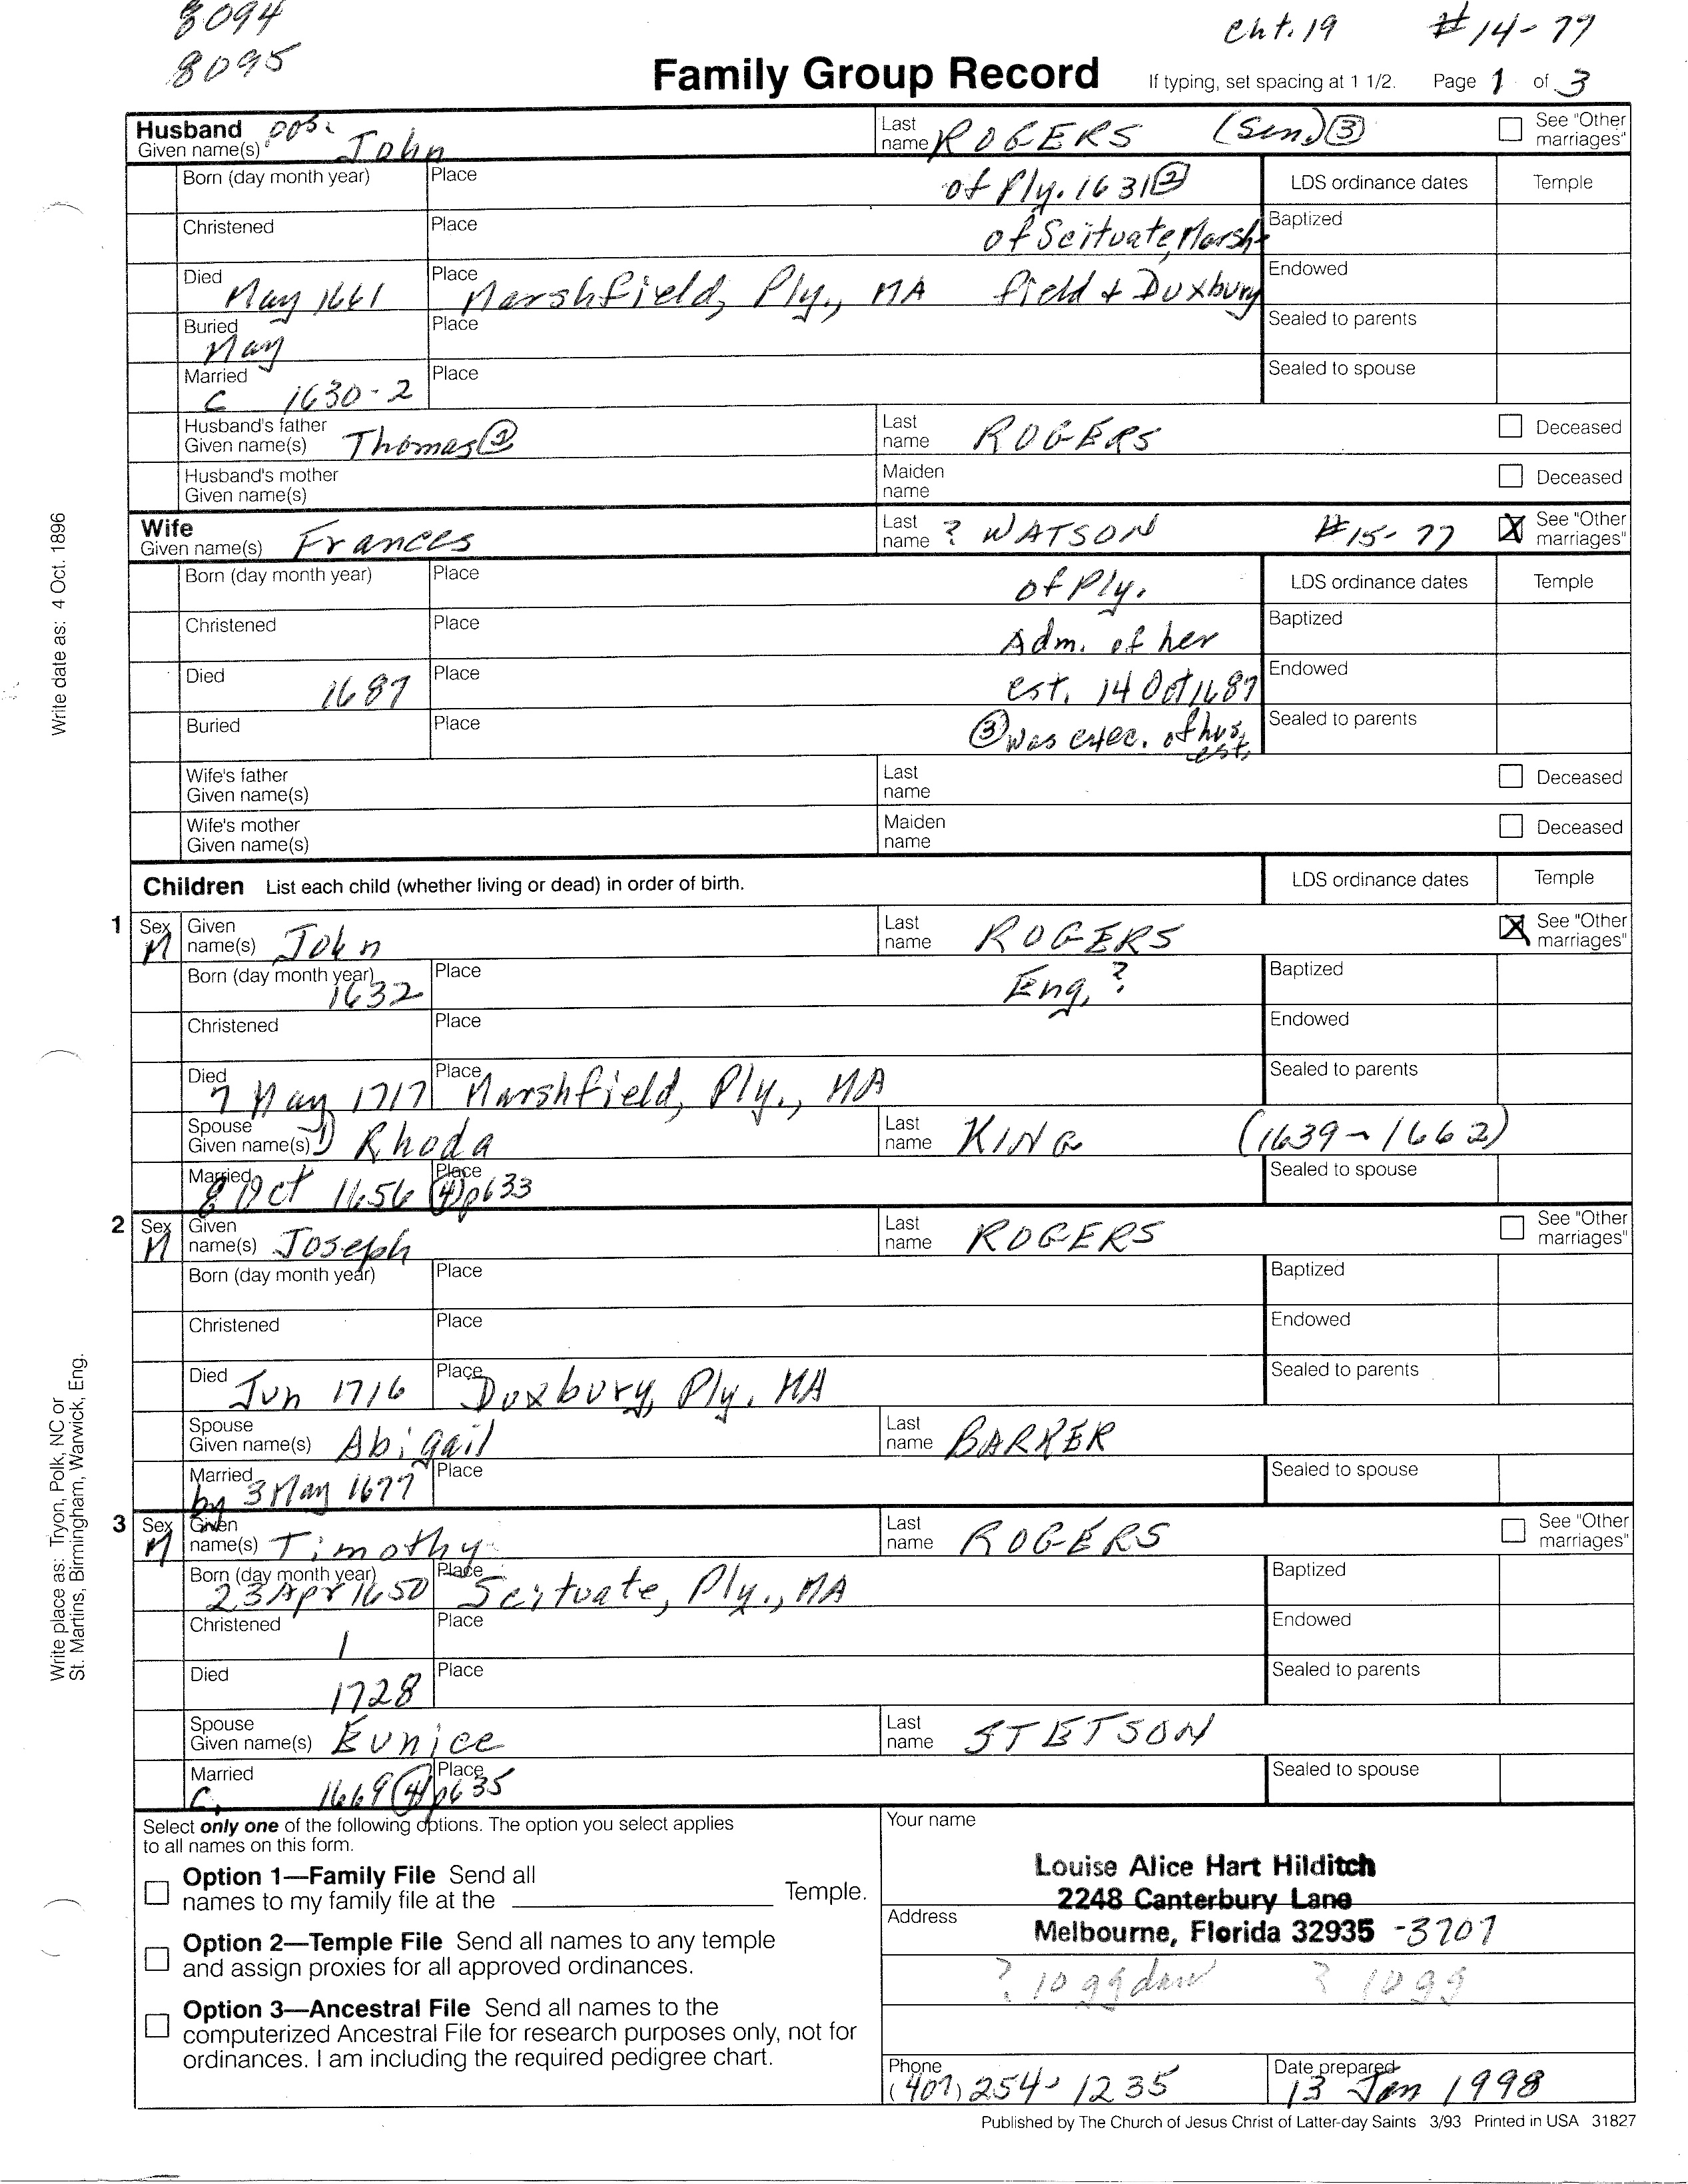 8094
8095
cht. 19 #14-77
Family Group Record If typing, set spacing at 1 1/2. Page 1 of 3
Husband poss.
Given name(s) John Last name ROGERS (Sen.) ③ See "Other marriages"
Born (day month year) Place of Ply. 1631 ② LDS ordinance dates Temple
Christened Place of Scituate, Marsh- Baptized
Died May 1661 Place Marshfield, Ply., MA field + Duxbury Endowed
Buried May Place Sealed to parents
Married C 1630-2 Place Sealed to spouse
Husband's father Given name(s) Thomas ② Last name ROGERS Deceased
Husband's mother Given name(s) Maiden name Deceased
Wife
Given name(s) Frances Last name ? WATSON #15-77 See "Other marriages"
Born (day month year) Place of Ply. LDS ordinance dates Temple
Christened Place Adm. of her Baptized
Died 1687 Place est. 14 Oct 1687 Endowed
Buried Place ③ was exec. of hus. est. Sealed to parents
Wife's father Given name(s) Last name Deceased
Wife's mother Given name(s) Maiden name Deceased
Children List each child (whether living or dead) in order of birth. LDS ordinance dates Temple
1 Sex M Given name(s) John Last name ROGERS See "Other marriages"
Born (day month year) 1632 Place Eng. ? Baptized
Christened Place Endowed
Died 7 May 1717 Place Marshfield, Ply., MA Sealed to parents
Spouse Given name(s) 1) Rhoda Last name KING (1639-1662)
Married 8 Oct 1656 Place ④ p633 Sealed to spouse
2 Sex M Given name(s) Joseph Last name ROGERS See "Other marriages"
Born (day month year) Place Baptized
Christened Place Endowed
Died Jun 1716 Place Duxbury, Ply. MA Sealed to parents
Spouse Given name(s) Abigail Last name BARKER
Married by 3 May 1677 Place Sealed to spouse
3 Sex M Given name(s) Timothy Last name ROGERS See "Other marriages"
Born (day month year) 23 Apr 1650 Place Scituate, Ply., MA Baptized
Christened Place Endowed
Died 1728 Place Sealed to parents
Spouse Given name(s) Eunice Last name STETSON
Married C. 1669 Place ④ p635 Sealed to spouse
Select only one of the following options. The option you select applies
to all names on this form.
Option 1—Family File Send all
names to my family file at the Temple.
Option 2—Temple File Send all names to any temple
and assign proxies for all approved ordinances.
Option 3—Ancestral File Send all names to the
computerized Ancestral File for research purposes only, not for
ordinances. I am including the required pedigree chart.
Your name
Louise Alice Hart Hilditch
2248 Canterbury Lane
Address
Melbourne, Florida 32935 -3707
? 1099 ? 1099
Phone (407) 254-1235 Date prepared 13 Jan 1998
Published by The Church of Jesus Christ of Latter-day Saints 3/93 Printed in USA 31827
Write date as: 4 Oct. 1896
Write place as: Tryon, Polk, NC or
St. Martins, Birmingham, Warwick, Eng.